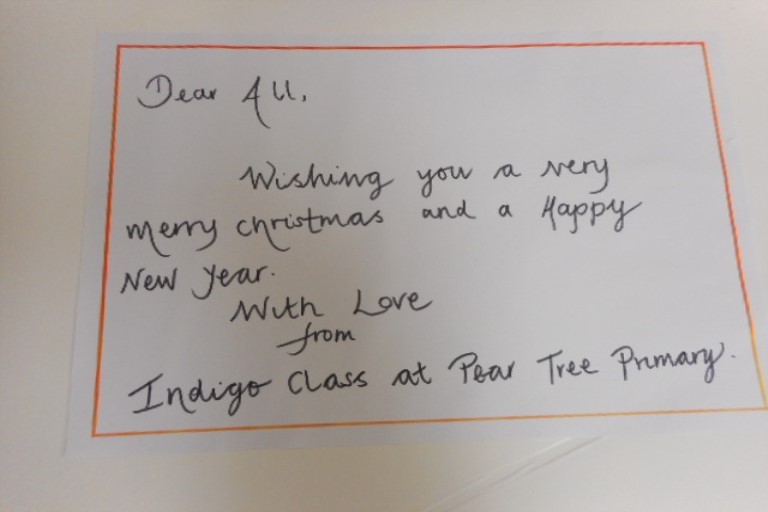 Dear All,
Wishing you a very
merry christmas and a Happy
New Year.
With Love
from
Indigo Class at Pear Tree Primary.